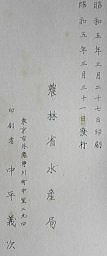 昭和五年三月二十七日印刷
昭和五年三月三十一日發行
農林省水産局
東京市外
印刷者 中平義次